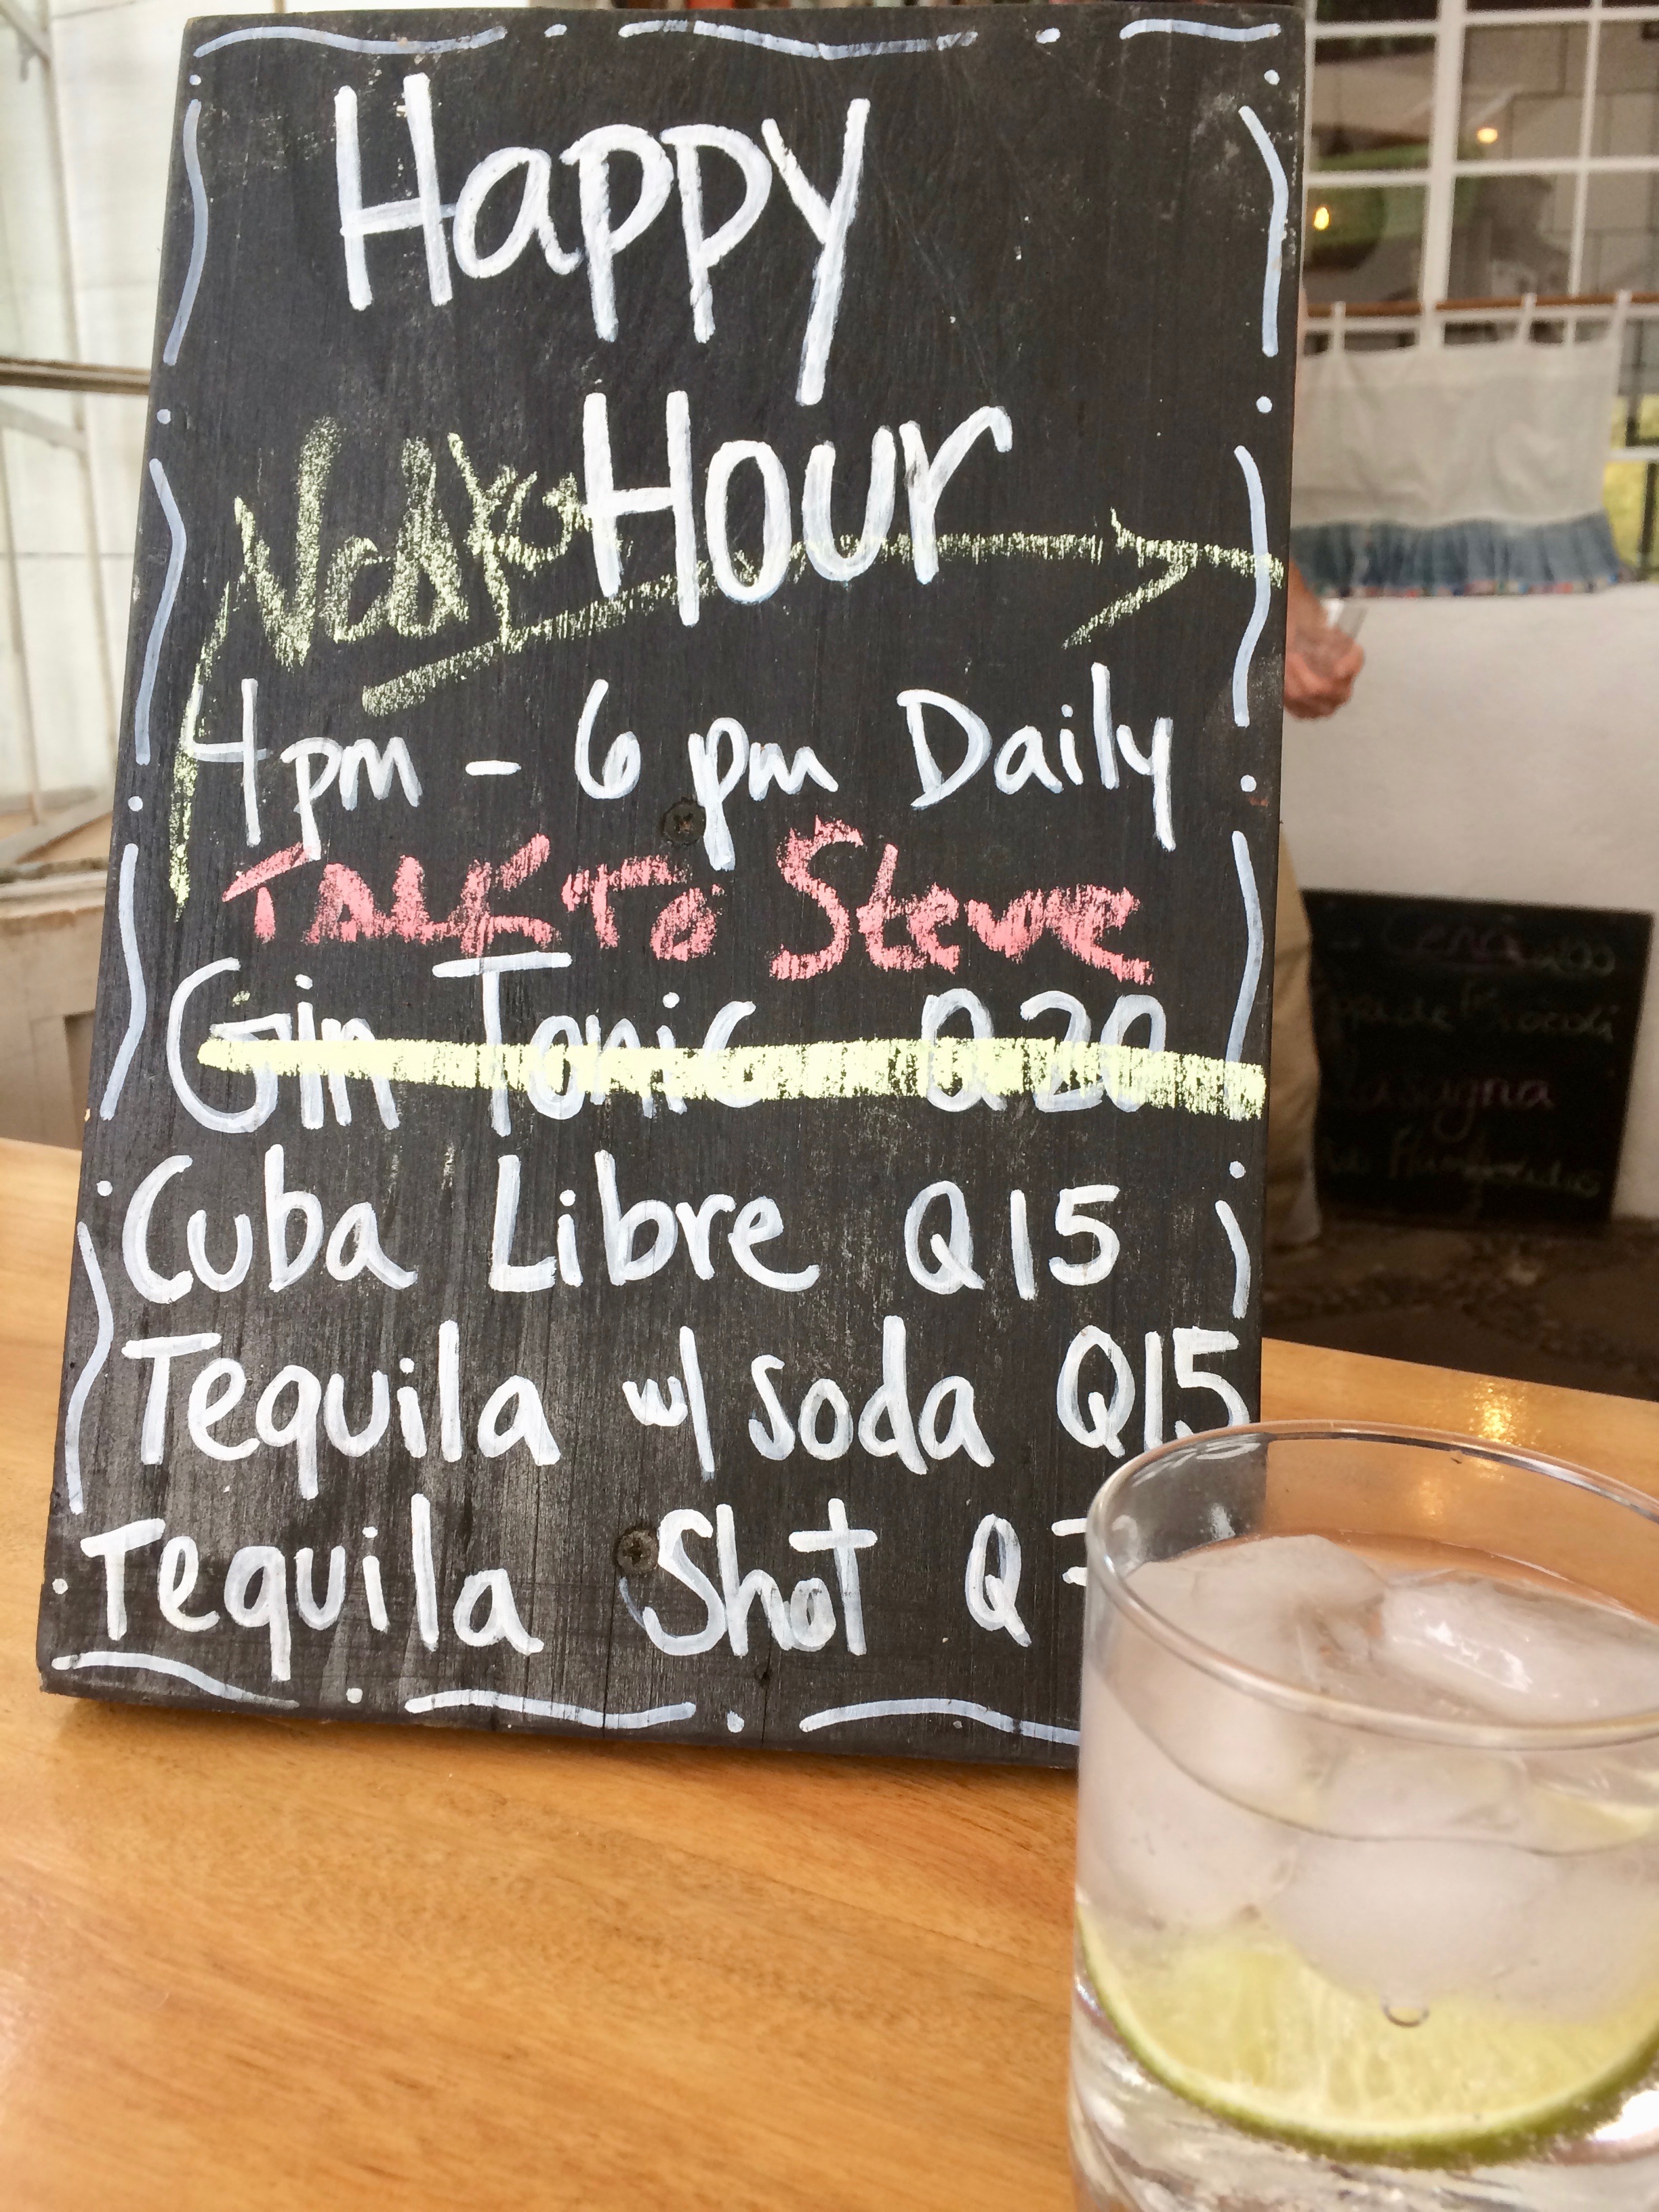 Happy
Hour
4pm - 6pm Daily
TALK To Steve
Gin Tonic Q20
Cuba Libre Q15
Tequila w/ soda Q15
Tequila Shot Q
Cena
Brocoli
Lasagna